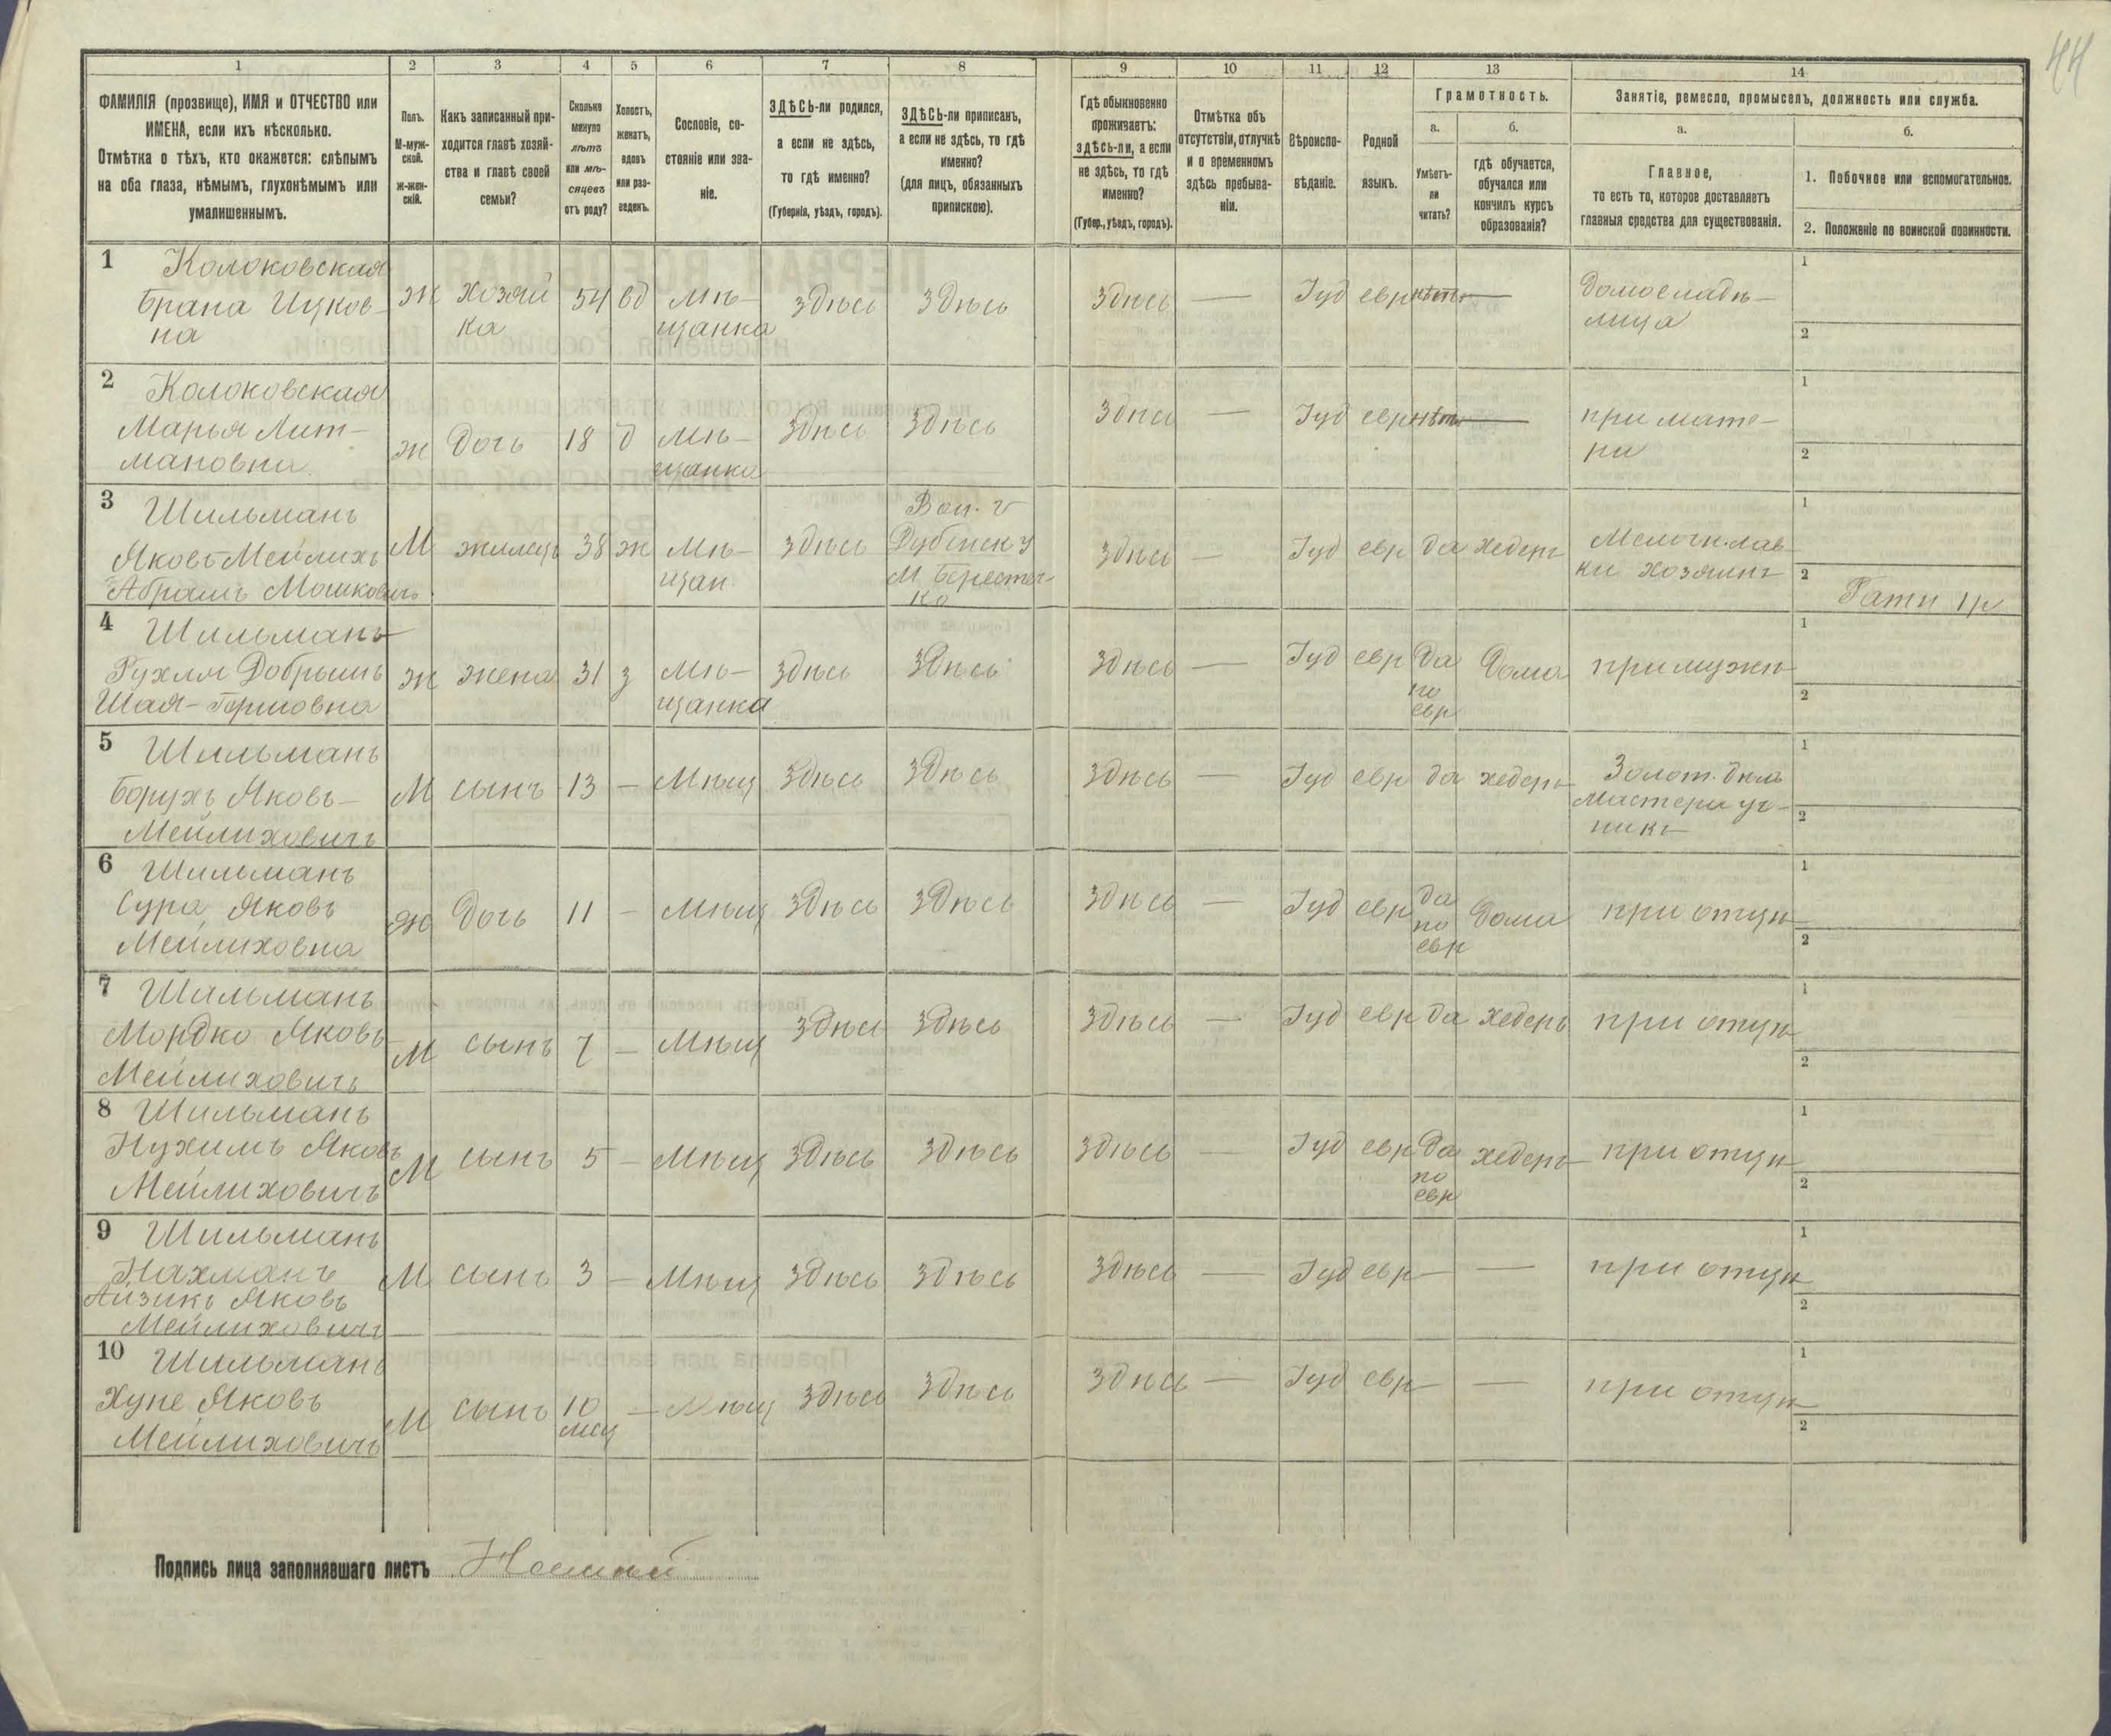 44
1 2 3 4 5 6 7 8 9 10 11 12 13 14
ФАМИЛІЯ (прозвище), ИМЯ и ОТЧЕСТВО или
ИМЕНА, если ихъ нѣсколько.
Отмѣтка о тѣхъ, кто окажется: слѣпымъ
на оба глаза, нѣмымъ, глухонѣмымъ или
умалишеннымъ.
Полъ.
М-муж-
ской.
ж-жен-
скій.
Какъ записанный при-
ходится главѣ хозяй-
ства и главѣ своей
семьи?
Сколько
минуло
лѣтъ
или мѣ-
сяцевъ
отъ роду?
Холостъ,
женатъ,
вдовъ
или раз-
веденъ.
Сословіе, со-
стояніе или зва-
ніе.
ЗДѢСЬ-ли родился,
а если не здѣсь,
то гдѣ именно?
(Губернія, уѣздъ, городъ).
ЗДѢСЬ-ли приписанъ,
а если не здѣсь, то гдѣ
именно?
(для лицъ, обязанныхъ
припискою).
Гдѣ обыкновенно
проживаетъ:
здѣсь-ли, а если
не здѣсь, то гдѣ
именно?
(Губер., уѣздъ, городъ).
Отмѣтка объ
отсутствіи, отлучкѣ
и о временномъ
здѣсь пребыва-
ніи.
Вѣроиспо-
вѣданіе.
Родной
языкъ.
Грамотность.
а.
Умѣетъ-
ли
читать?
б.
гдѣ обучается,
обучался или
кончилъ курсъ
образованія?
Занятіе, ремесло, промыселъ, должность или служба.
а.
Главное,
то есть то, которое доставляетъ
главныя средства для существованія.
б.
1. Побочное или вспомогательное.
2. Положеніе по воинской повинности.
1 Колоковская
Брана Ицков-
на
ж
хозяй
ка
54
вд
мѣ-
щанка
здѣсь
здѣсь
здѣсь
—
Iуд
евр
нѣтъ
—
домовладѣ-
лица
1
2
2 Колоковская
Марья Лит-
мановна
ж
дочь
18
д
мѣ-
щанка
здѣсь
здѣсь
здѣсь
—
Iуд
евр
нѣтъ
—
при мате-
ри
1
2
3 Шильманъ
Яковъ Мейлихъ
Абрамъ Мошковичъ
М
жилецъ
38
ж
мѣ-
щан.
здѣсь
Вол. г
Дубенск у
м. Берестеч-
ко
здѣсь
—
Iуд
евр
да
хедеръ
Мелочн. лав
ки хозяинъ
1
2
4 Шильманъ
Рухля Добрышъ
Шая-Гершовна
ж
жена
31
з
мѣ-
щанка
здѣсь
здѣсь
здѣсь
—
Iуд
евр
да
по
евр
дома
при мужѣ
1
2
5 Шильманъ
Борухъ Яковъ-
Мейлиховичъ
М
сынъ
13
—
мѣщ
здѣсь
здѣсь
здѣсь
—
Iуд
евр
да
хедеръ
Золот. дѣлъ
мастера уч-
никъ
1
2
6 Шильманъ
Сура Яковъ
Мейлиховна
ж
дочь
11
—
мѣщ
здѣсь
здѣсь
здѣсь
—
Iуд
евр
да
по
евр
дома
при отцѣ
1
2
7 Шильманъ
Мордко Яковъ-
Мейлиховичъ
М
сынъ
7
—
мѣщ
здѣсь
здѣсь
здѣсь
—
Iуд
евр
да
хедеръ
при отцѣ
1
2
8 Шильманъ
Нухимъ Яковъ
Мейлиховичъ
М
сынъ
5
—
мѣщ
здѣсь
здѣсь
здѣсь
—
Iуд
евр
да
по
евр
хедеръ
при отцѣ
1
2
9 Шильманъ
Нахманъ
Айзикъ Яковъ
Мейлиховичъ
М
сынъ
3
—
мѣщ
здѣсь
здѣсь
здѣсь
—
Iуд
евр
—
—
при отцѣ
1
2
10 Шильманъ
Хуне Яковъ
Мейлиховичъ
М
сынъ
10
мсц
—
мѣщ
здѣсь
здѣсь
здѣсь
—
Iуд
евр
—
—
при отцѣ
1
2
Подпись лица заполнявшаго листъ